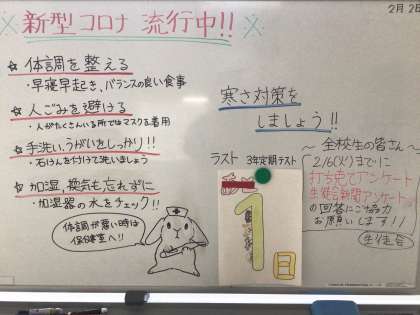 ※新型コロナ 流行中!!※
2月2日
☆ 体調を整える
・早寝早起き、バランスの良い食事
☆ 人ごみを避ける
・人がたくさんいる所ではマスクを着用
☆ 手洗い、うがいをしっかり!!
・石けんを付けて洗いましょう
☆ 加湿、換気も忘れずに
・加湿器の水をチェック!!
体調が悪い時は
保健室へ!!
寒さ対策を
しましょう!!
ラスト 3年定期テスト
1
日
〜 全校生の皆さん 〜
2/6(火)までに
打ち色でアンケート
生徒会新聞アンケート
の回答にご協力
お願いします!!
生徒会